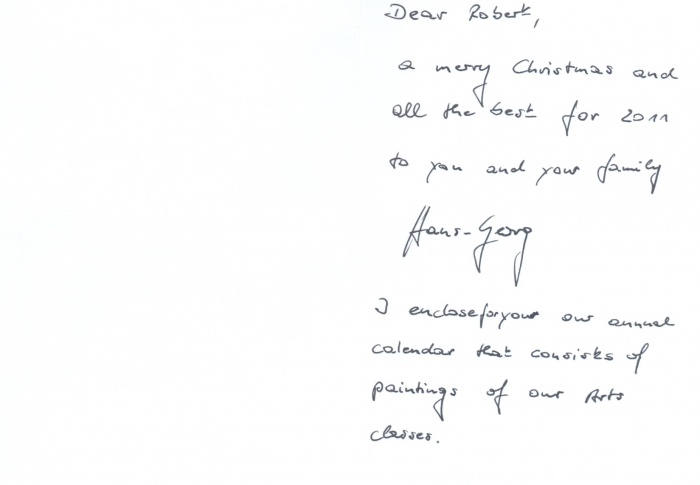 Dear Robert,
a merry Christmas and
all the best for 2011
to you and your family
Hans-Georg
I enclose for your our annual
calendar that consists of
paintings of our Arts
classes.